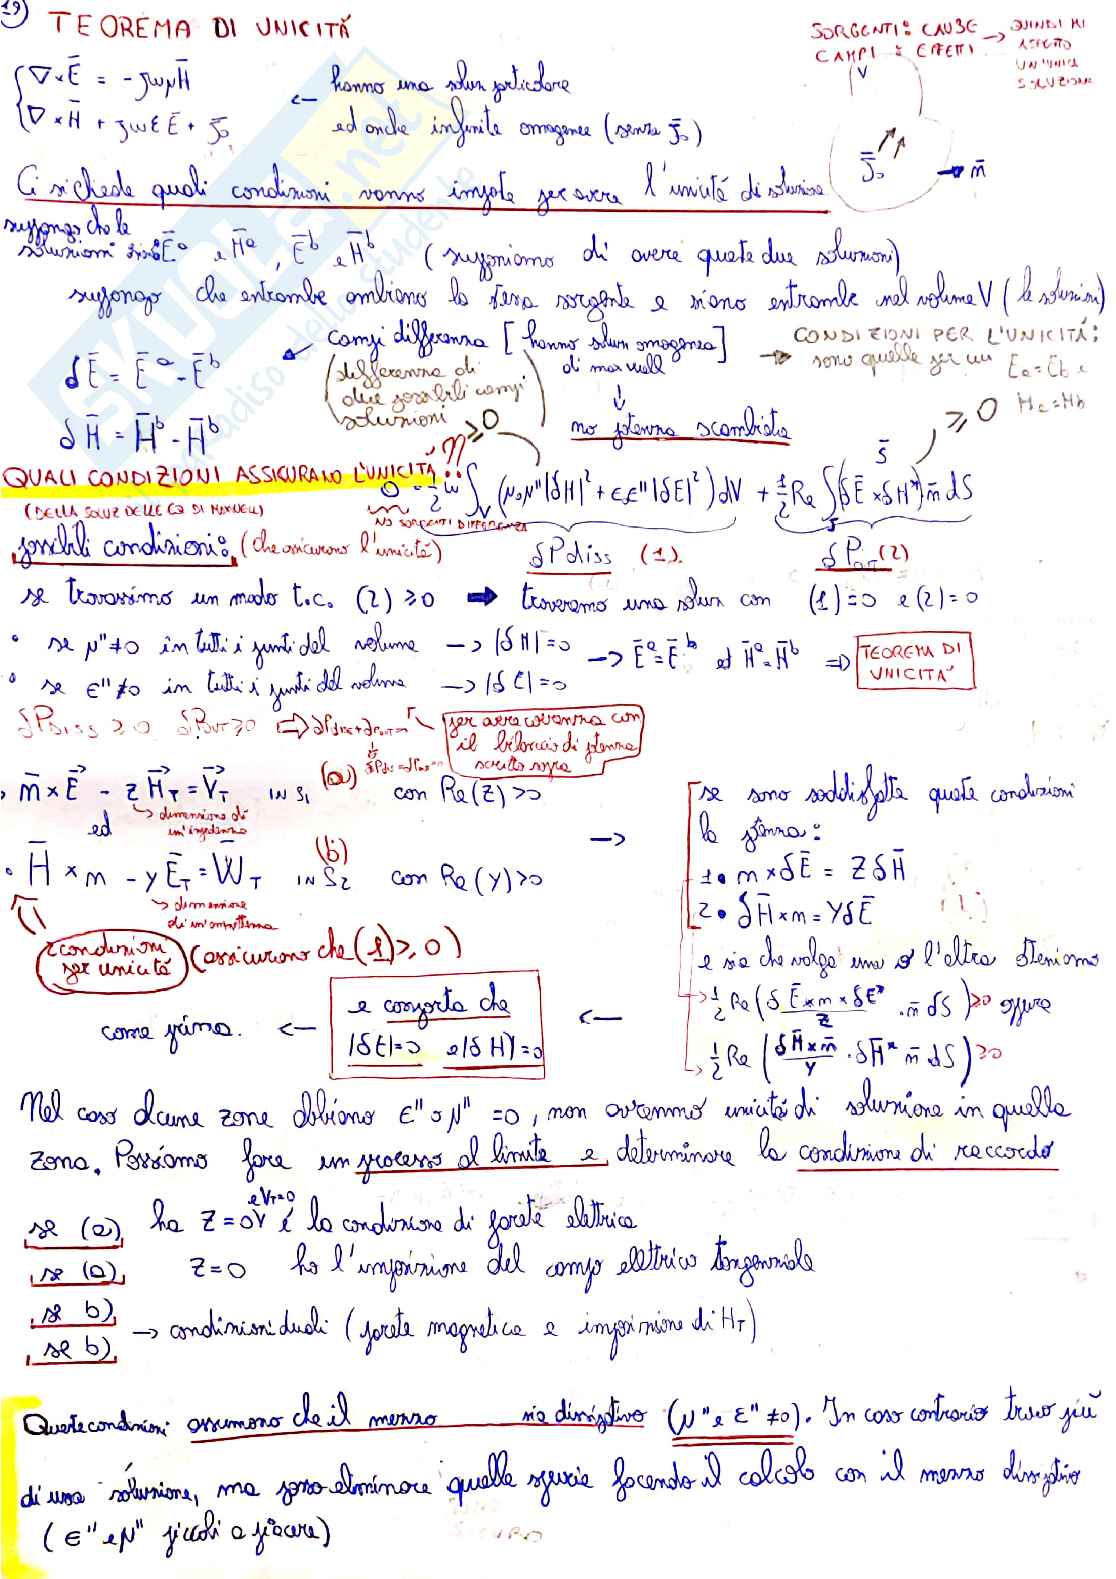 19) TEOREMA DI UNICITÁ
SORGENTI: CAUSE → QUINDI MI
CAMPI : EFFETTI ASPETTO
UN'UNICA
SOLUZIONE
V
J̄₀
n̄
∇×Ē = -jωμH̄ ← hanno una soluz particolare
∇×H̄ + jωεĒ + J̄₀ ed anche infinite omogenee (senza J̄₀)
Ci si chiede quali condizioni vanno imposte per avere l'unicitá di soluzione
suppongo che le
soluzioni siano Ēᵃ e H̄ᵃ, Ēᵇ e H̄ᵇ (supponiamo di avere queste due soluzioni)
suppongo che entrambe abbiano la stessa sorgente e siano entrambe nel volume V (le soluzioni)
δĒ = Ēᵃ - Ēᵇ
δH̄ = H̄ᵇ - H̄ᵇ
campi differenza [hanno soluz omogenea]
di maxwell
(differenza di
due possibili campi
soluzioni)
↓
no potenza scambiata
→ CONDIZIONI PER L'UNICITÁ:
sono quelle per cui Ea=Eb e
Ha=Hb
≥0
≥0
QUALI CONDIZIONI ASSICURANO L'UNICITÁ
(DELLA SOLUZ DELLE EQ DI MAXWELL)
0 = ½ω∫ᵥ(μ₀μ"|δH|² + ε₀ε"|δE|²)dV + ½Re∫(δĒ×δH*)n̄ dS
S̄
NO SORGENTI DIFFERENZA
δPdiss (1).
δPout (2)
possibili condizioni: (che assicurano l'unicitá)
se trovassimo un modo t.c. (2) ≥0 → troveremo una soluz con (1)=0 e (2)=0
• se μ"≠0 in tutti i punti del volume → |δH|=0
• se ε"≠0 in tutti i punti del volume → |δE|=0
→ Ēᵃ=Ēᵇ ed H̄ᵃ=H̄ᵇ ⇒ TEOREMA DI
UNICITA'
δPDISS ≥0 δPOUT ≥0 ⇒ δPdiss+δPout=
per avere coerenza con
il bilancio di potenza
scritto sopra
• n̄×Ē - zH̄T = V̄T IN S₁ (a) con Re(z)>0
dimensione di
un'impedenza
ed
• H̄×n - yĒT = W̄T IN S₂ (b) con Re(y)>0
dimensione
di un'ammettenza
2 condizioni
per unicitá
(assicurano che (1)≥0)
→ se sono soddisfatte queste condizioni
la potenza:
1• n×δĒ = ZδH̄
2• δH̄×n = YδĒ
e sia che valga una o l'altra otteniamo
½Re(δĒ×n×δE*/z · n̄ dS)≥0 oppure
½Re(δH̄×n̄/y · δH̄* n̄ dS)≥0
← e comporta che
|δE|=0 e|δH|=0
← come prima.
Nel caso alcune zone abbiano ε" o μ" =0, non avremmo unicitá di soluzione in quella
zona. Possiamo fare un processo al limite e determinare la condizione di raccordo
se (a) ha Z=0 e VT=0 é la condizione di parete elettrica
se (a) Z=0 ho l'imposizione del campo elettrico tangenziale
se b)
se b) → condizioni duali (parete magnetica e imposizione di HT)
Queste condizioni assumono che il mezzo sia dissipativo (μ" e ε" ≠0). In caso contrario trovo piú
di una soluzione, ma posso eliminare quelle spurie facendo il calcolo con il mezzo dissipativo
(ε" e μ" piccoli a piacere)